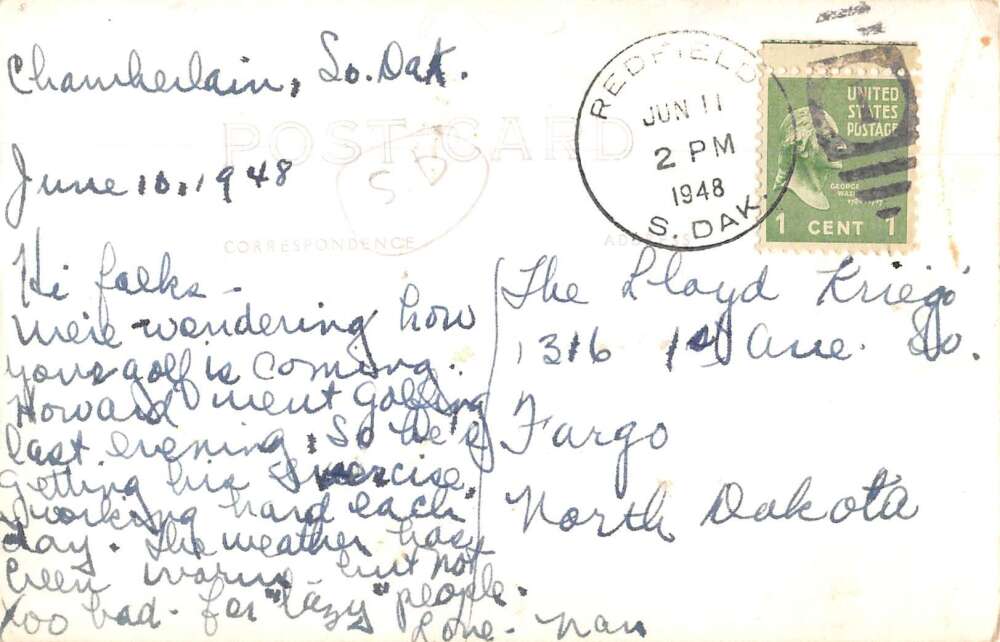 Chamberlain, So. Dak.
June 10, 1948
POST CARD
S D
CORRESPONDENCE
REDFIELD
JUN 11
2 PM
1948
S. DAK.
UNITED
STATES
POSTAGE
GEORGE
1 CENT 1
Hi folks -
We're wondering how
your golf is coming.
Howard went golfing
last evening, so he's
getting his exercise.
Working hard each
day. The weather has
been warm - but not
too bad - for "lazy" people.
Love - Nan
The Lloyd Kriegs'
1316 1st Ave. So.
Fargo
North Dakota